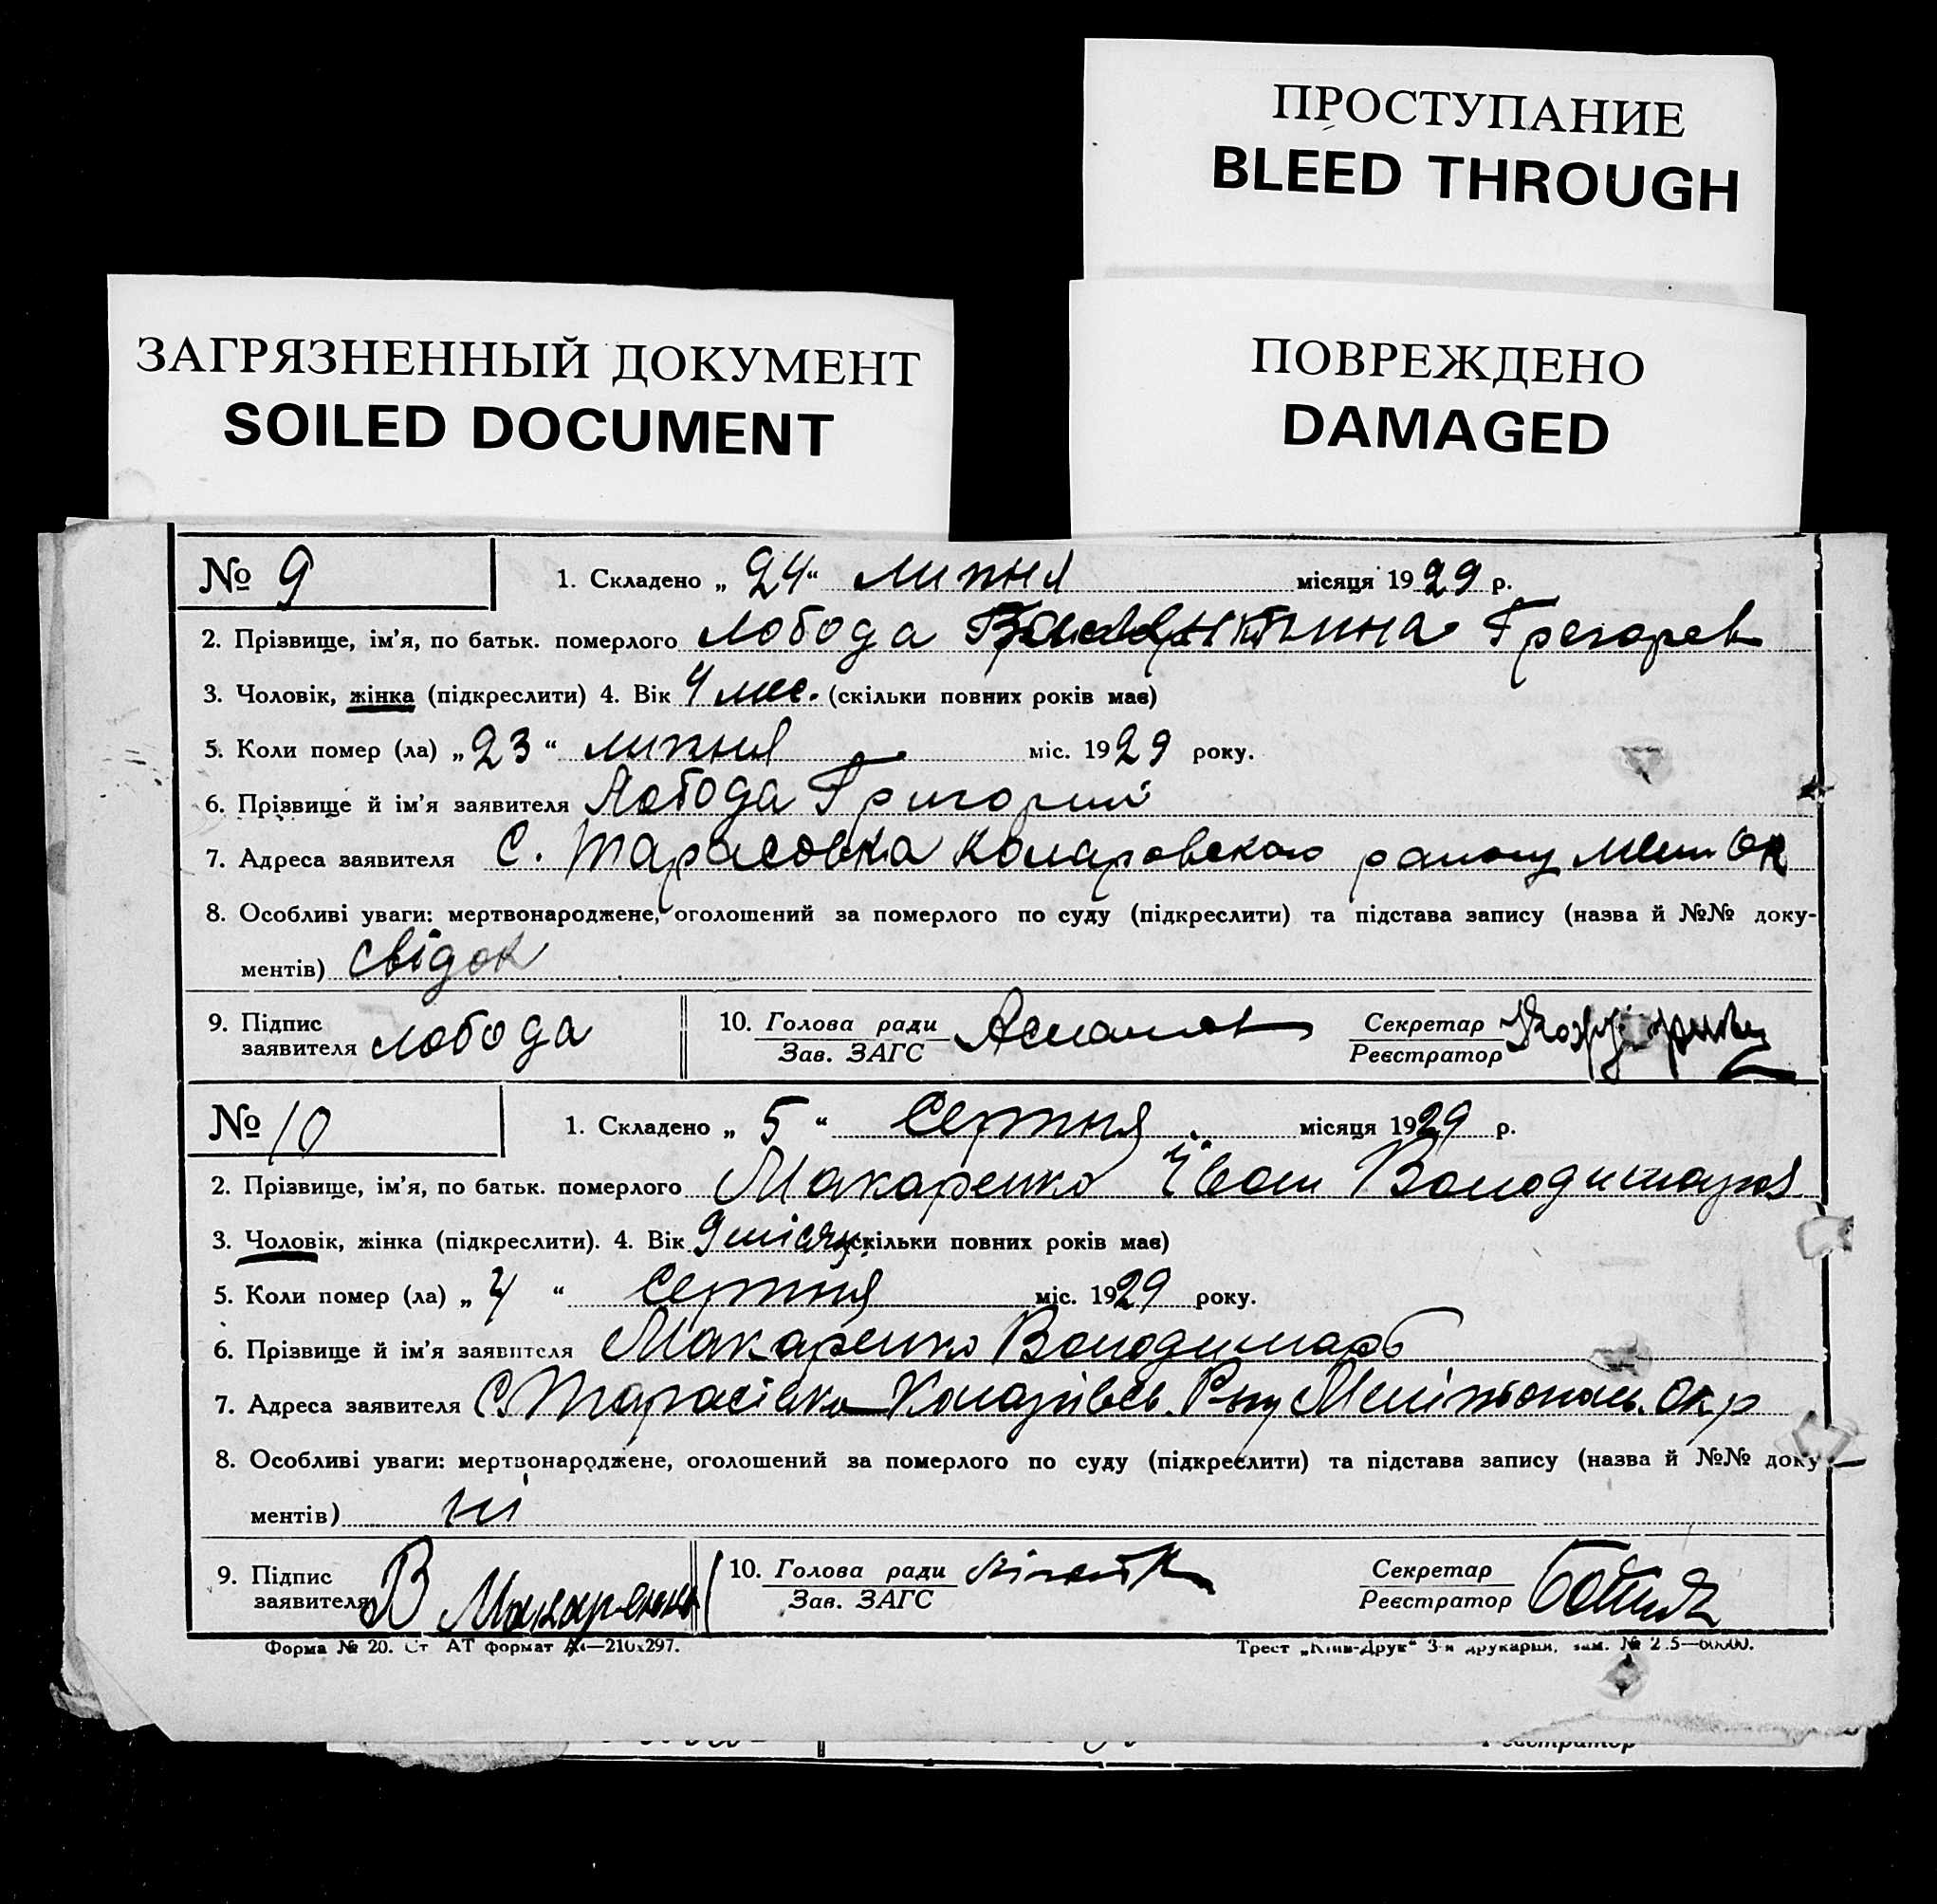 ПРОСТУПАНИЕ
BLEED THROUGH
ЗАГРЯЗНЕННЫЙ ДОКУМЕНТ
SOILED DOCUMENT
ПОВРЕЖДЕНО
DAMAGED
№ 9 1. Складено „ 24 “ липня місяця 1929 р.
2. Прізвище, ім’я, по батьк. померлого Лобода Грегорев
3. Чоловік, жінка (підкреслити) 4. Вік 4 мес. (скільки повних років має)
5. Коли помер (ла) „ 23 “ липня міс. 1929 року.
6. Прізвище й ім’я заявителя Лобода Григорий
7. Адреса заявителя С. Тарасовка Комаровского району Мели Ок
8. Особливі уваги: мертвонароджене, оголошений за померлого по суду (підкреслити) та підстава запису (назва й №№ доку-
ментів) Свідок
9. Підпис заявителя Лобода 10. Голова ради Зав. ЗАГС Секретар Реєстратор
№ 10 1. Складено „ 5 “ Серпня місяця 1929 р.
2. Прізвище, ім’я, по батьк. померлого Макаренко Іван
3. Чоловік, жінка (підкреслити). 4. Вік 9 місяц. скільки повних років має)
5. Коли помер (ла) „ 4 “ Серпня міс. 1929 року.
6. Прізвище й ім’я заявителя Макаренко Володимарь
7. Адреса заявителя С. Тарасівка Р-ну Мелітополь. Окр
8. Особливі уваги: мертвонароджене, оголошений за померлого по суду (підкреслити) та підстава запису (назва й №№ доку
ментів) ні
9. Підпис заявителя В Макаренко 10. Голова ради Зав. ЗАГС Секретар Реєстратор
Форма № 20. Ст АТ формат —210х297. Трест „Київ-Друк“ 3-я друкарня, зам. №
Реєстратор